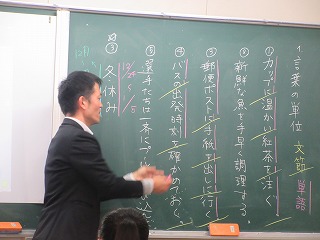 1 言葉の単位 文節 単語
①カップに温かい紅茶を注ぐ。
②新鮮な魚を手早く調理する。
③郵便ポストに手紙を出しに行く。
④バスの出発時刻を確かめておく。
⑤選手たちは一斉に
③冬休み
12/26
1/5